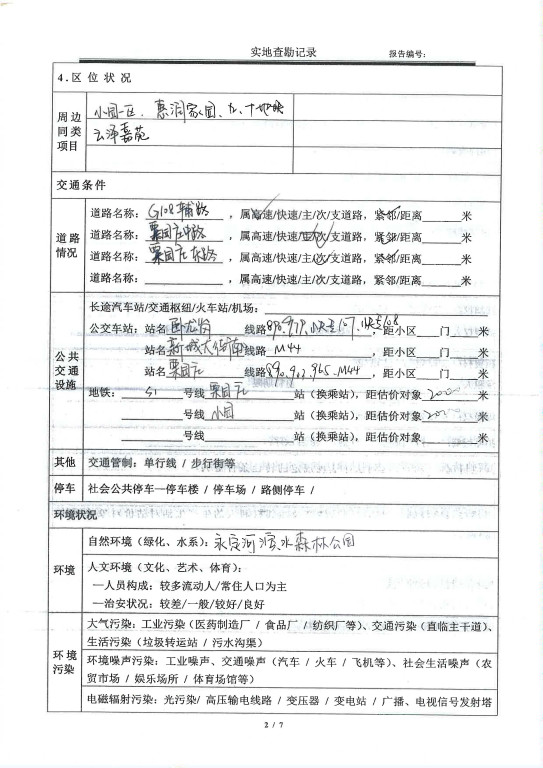 实地查勘记录 报告编号:
4.区 位 状 况
周边同类项目
小园一区、惠润家园、九、十地块
云泽嘉苑
交通条件
道路情况
道路名称: G108辅路 ,属高速/快速/主/次/支道路,紧邻/距离 米
道路名称: 栗园庄中路 ,属高速/快速/主/次/支道路,紧邻/距离 米
道路名称: 栗园庄东路 ,属高速/快速/主/次/支道路,紧邻/距离 米
道路名称: ,属高速/快速/主/次/支道路,紧邻/距离 米
公共交通设施
长途汽车站/交通枢纽/火车站/机场:
公交车站: 站名 卧龙岗 线路 890.979. ,距小区 门 米
站名 新城大街南 线路 M44 ,距小区 门 米
站名 栗园庄 线路 890.902.965.M44 ,距小区 门 米
地铁: S1 号线 栗园庄 站(换乘站),距估价对象 2000 米
号线 小园 站(换乘站),距估价对象 米
号线 站(换乘站),距估价对象 米
其他 交通管制: 单行线 / 步行街等
停车 社会公共停车—停车楼 / 停车场 / 路侧停车 /
环境状况
环境
自然环境(绿化、水系): 永定河滨水森林公园
人文环境(文化、艺术、体育):
—人员构成: 较多流动人/常住人口为主
—治安状况: 较差/一般/较好/良好
环境污染
大气污染: 工业污染(医药制造厂 / 食品厂 / 纺织厂等)、交通污染(直临主干道)、
生活污染(垃圾转运站 / 污水沟渠)
环境噪声污染: 工业噪声、交通噪声(汽车 / 火车 / 飞机等)、社会生活噪声(农
贸市场 / 娱乐场所 / 体育场馆等)
电磁辐射污染: 光污染/ 高压输电线路 / 变压器 / 变电站 / 广播、电视信号发射塔
2 / 7